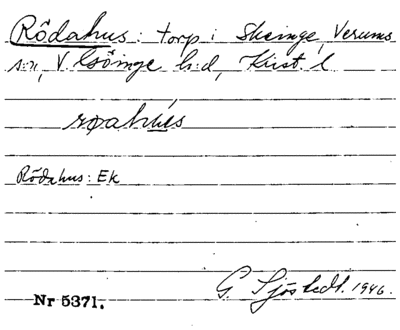 Rödahus: torp i Skeinge, Verums
sn, V. Göinge h:d, Krist. l.
Rödahus: Ek
G. Sjöstedt. 1946.
Nr 5371.